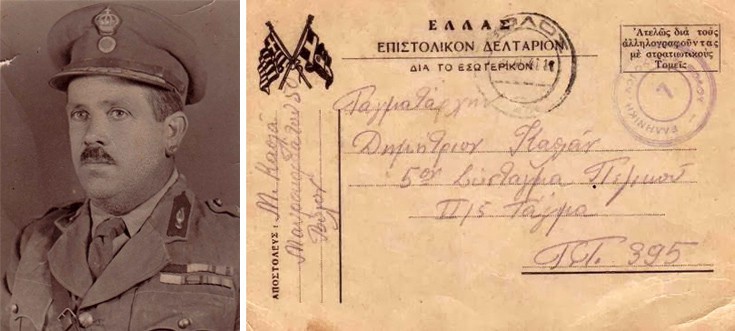 ΕΛΛΑΣ
ΕΠΙΣΤΟΛΙΚΟΝ ΔΕΛΤΑΡΙΟΝ
ΔΙΑ ΤΟ ΕΣΩΤΕΡΙΚΟΝ
Ἀτελῶς διὰ τοὺς
ἀλληλογραφοῦντας
μὲ στρατιωτικοὺς
Τομεῖς
ΒΟΛΟΣ
7
ΑΠΟΣΤΟΛΕΥΣ:
Βόλον
Ταγματάρχην
Δημήτριον
5ον Σύνταγμα Πεζικοῦ
ΙΙ/5 Τάγμα
395